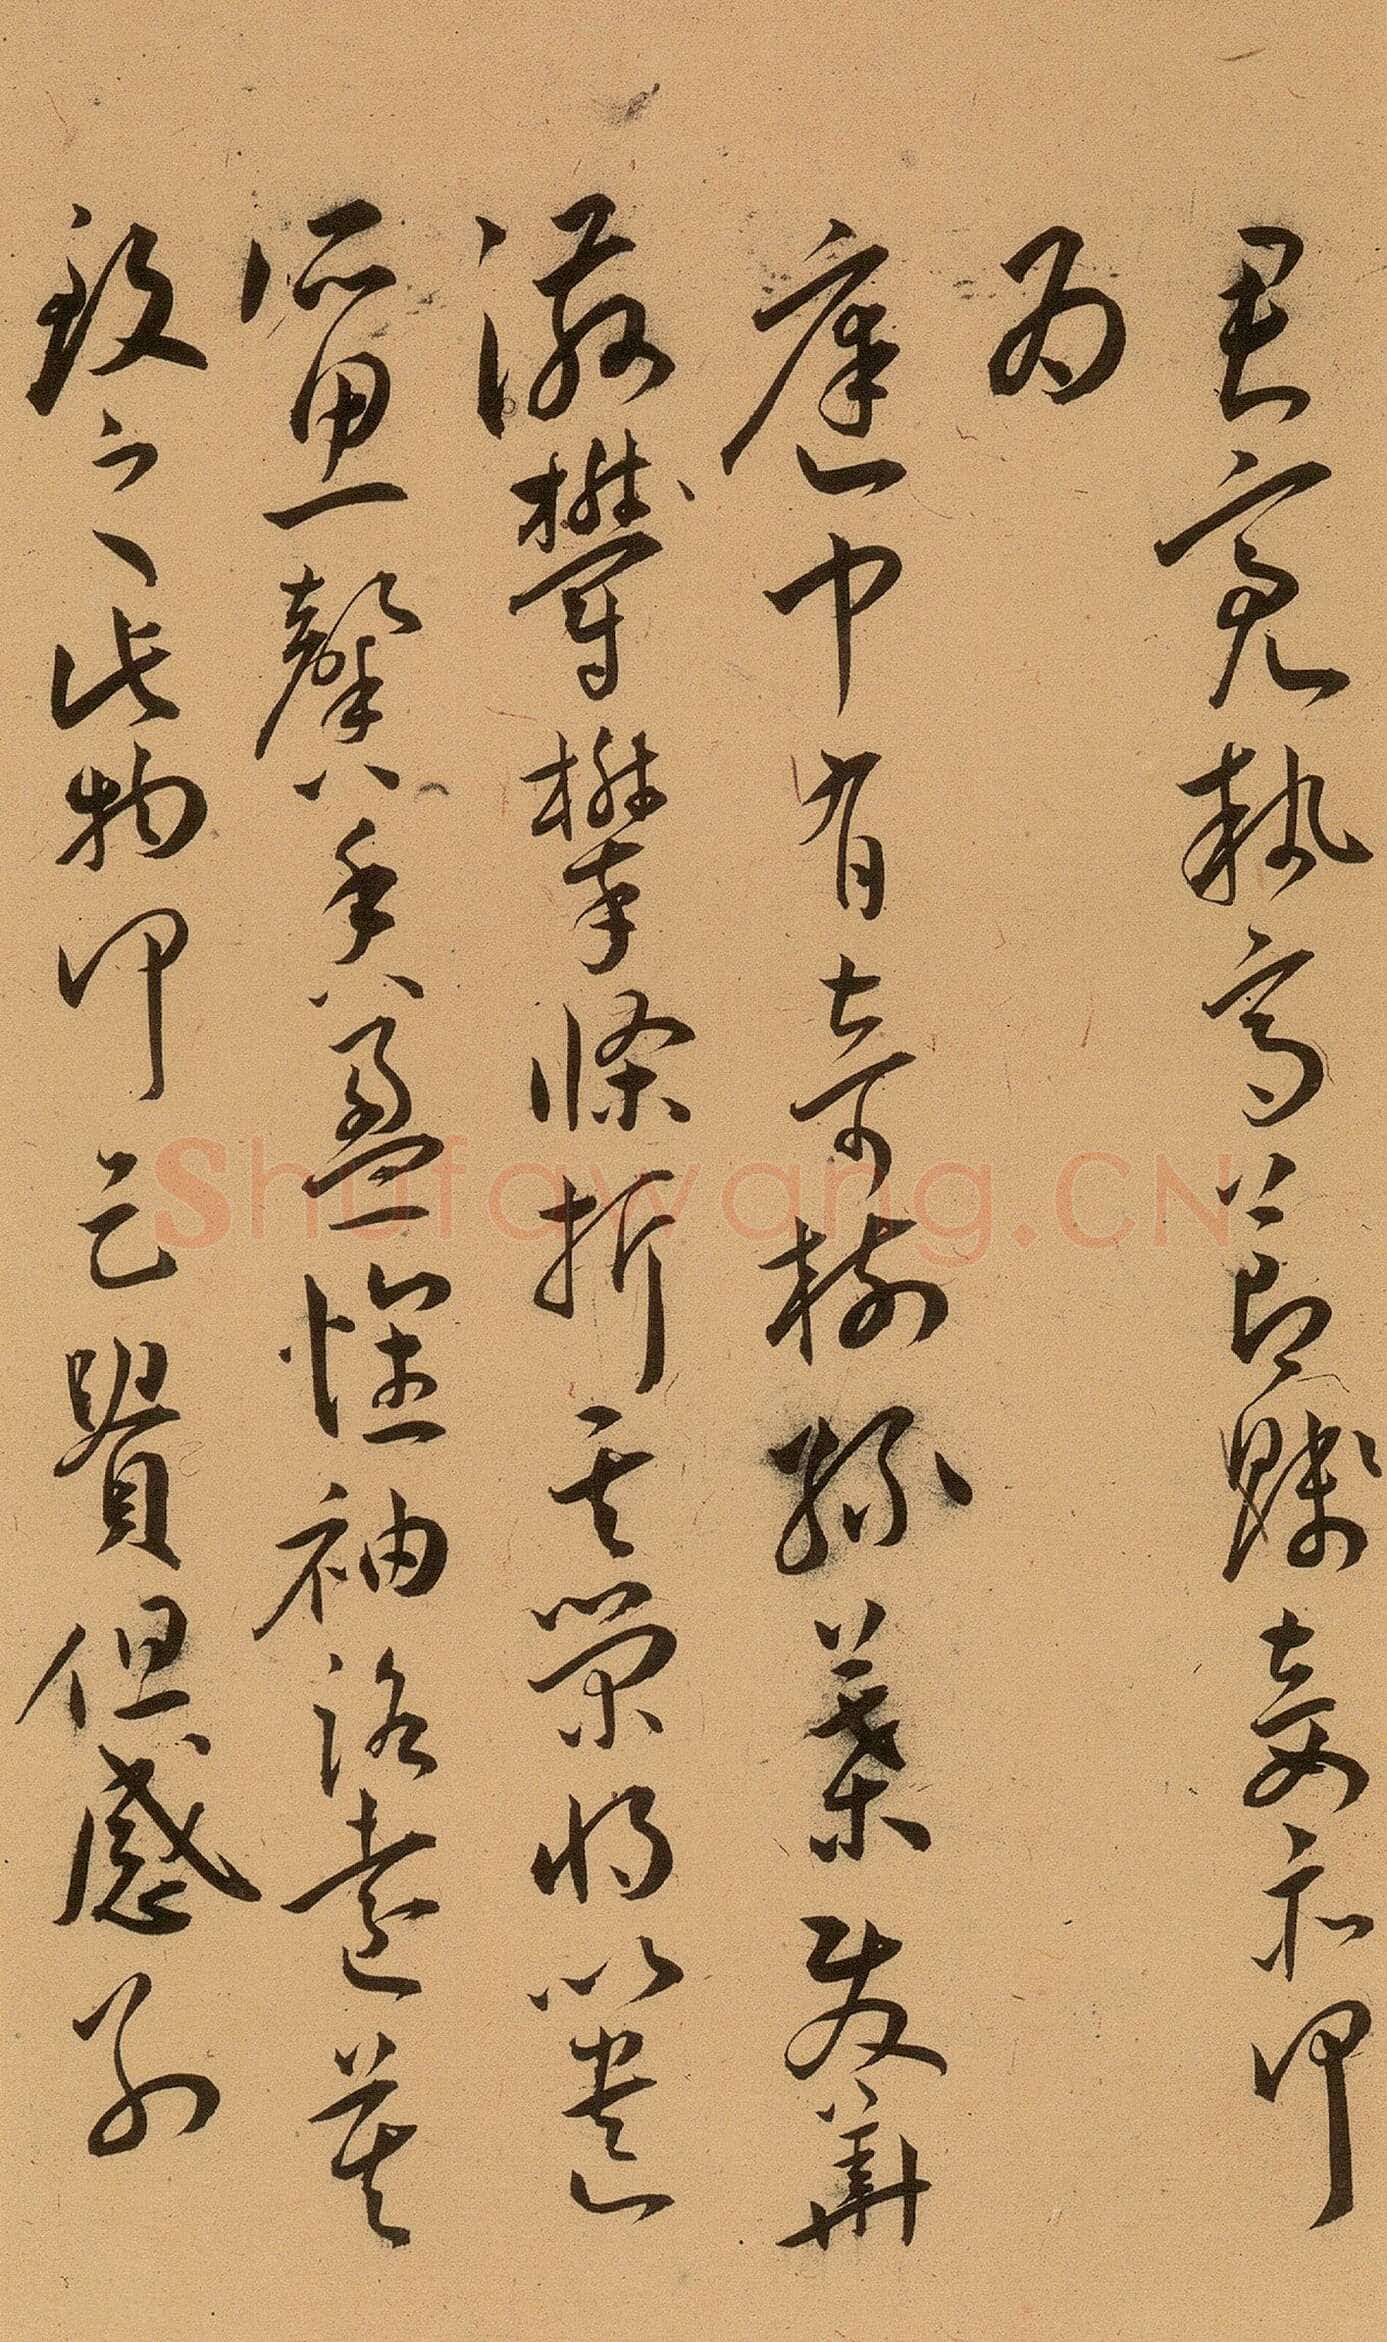 君亮執高節賤妾亦何
為
庭中有奇樹綠葉發華
滋攀條折其榮將以遺
所思馨香盈懷袖路遠莫
致之此物何足貴但感別
Shufawang.CN